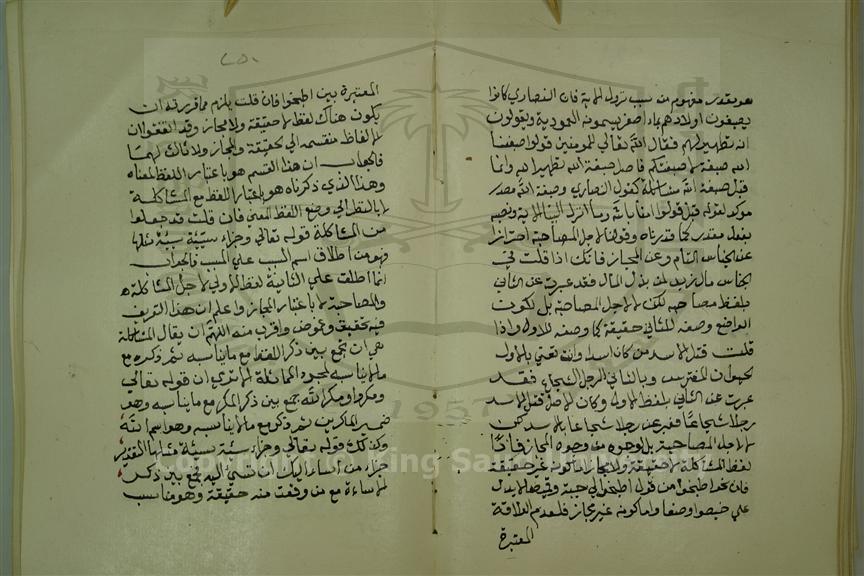 هو بتقدير مفهوم من سبب نزول الاية فان النصارى كانوا
يصبغون اولادهم بماء اصفر يسمونه المعمودية ويقولون
انه تطهير لهم فقال الله تعالى للمومنين قولوا صبغنا
الله صبغة لا صبغتكم فاصل صبغة الله تطهير الله وانما
قيل صبغة الله مشاكلة كقول النصارى وصبغة الله مصدر
موكد لقوله قيل قولوا امنا بالله وما انزل الينا الاية ونصبه
بفعل مقدر كما قدرناه وقولنا لاجل المصاحبة احترازا
عن الجناس التام وعن المجاز فانك اذا قلت في
الجناس مال زيد لمن بذل المال فقد عبرت عن الثاني
بلفظ مصاحبه لكن لا لاجل المصاحبة بل لكون
الواضع وضعه للثاني حقيقة كما وضعه للاول واذا
قلت قتل الاسد من كان اسدا وانت تعني بالاول
الحيوان المفترس وبالثاني الرجل الشجاع فقد
عبرت عن الثاني بلفظ الاول وكان الاصل قتل الاسد
رجلا شجاعا فعبر عن رجلا شجاعا بالاسد لكن
لا لاجل المصاحبة بل لوجود من وجوه المجاز فاذا
لفظ المشاكلة لا حقيقة ولا مجاز اما كونه غير حقيقة
فان نحو اطبخوا من قول اطبخوا لي جبة وقميصا لا يدل
على خيطوا وضعا واما كونه غير مجاز فلعدم العلاقة
المعتبرة
٢٥٠
المعتبرة بين اطبخوا فان قلت يلزم مما قررته ان
يكون هناك لفظ لا حقيقة ولا مجاز وقد اتفقوا ان
الالفاظ منقسمة الى حقيقة والمجاز ولا ثالث لهما
فالجواب ان هذا القسم هو باعتبار اللفظ لمعناه
وهذا الذي ذكرناه هو باعتبار اللفظ مع المشاكلة
لا بالنظر الى وضع اللفظ لمعنى فان قلت قد جعلوا
من المشاكلة قوله تعالى وجزاء سيئة سيئة مثلها
فهو من اطلاق اسم السبب على المسبب فالجواب
انما اطلقت على الثانية لفظ الاولى لاجل المشاكلة
والمصاحبة لا باعتبار المجاز واعلم ان هذا التعريف
فيه تحقيق وغموض واقرب منه اللهم ان يقال المشاكلة
هي ان تجمع بين ذكر اللفظ مع ما يناسبه ثم ذكره مع
ما لا يناسبه لمجرد المماثلة الا ترى ان قوله تعالى
ومكروا ومكر الله جمع بين ذكر المكر مع ما يناسبه وهو
ضمير الماكرين ثم ذكر مع ما لا يناسبه وهو اسم الله
وكذلك قوله تعالى وجزاء سيئة سيئة مثلها التقدير
جزاء من اساء اليك ان تسيء اليه جمع بين ذكر
الاساءة مع من وقعت منه حقيقة وهو مناسب
1957
Copyright © King Saud University